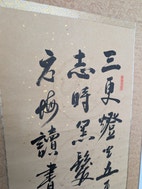 三更燈火五
志時黑髮
方悔讀書